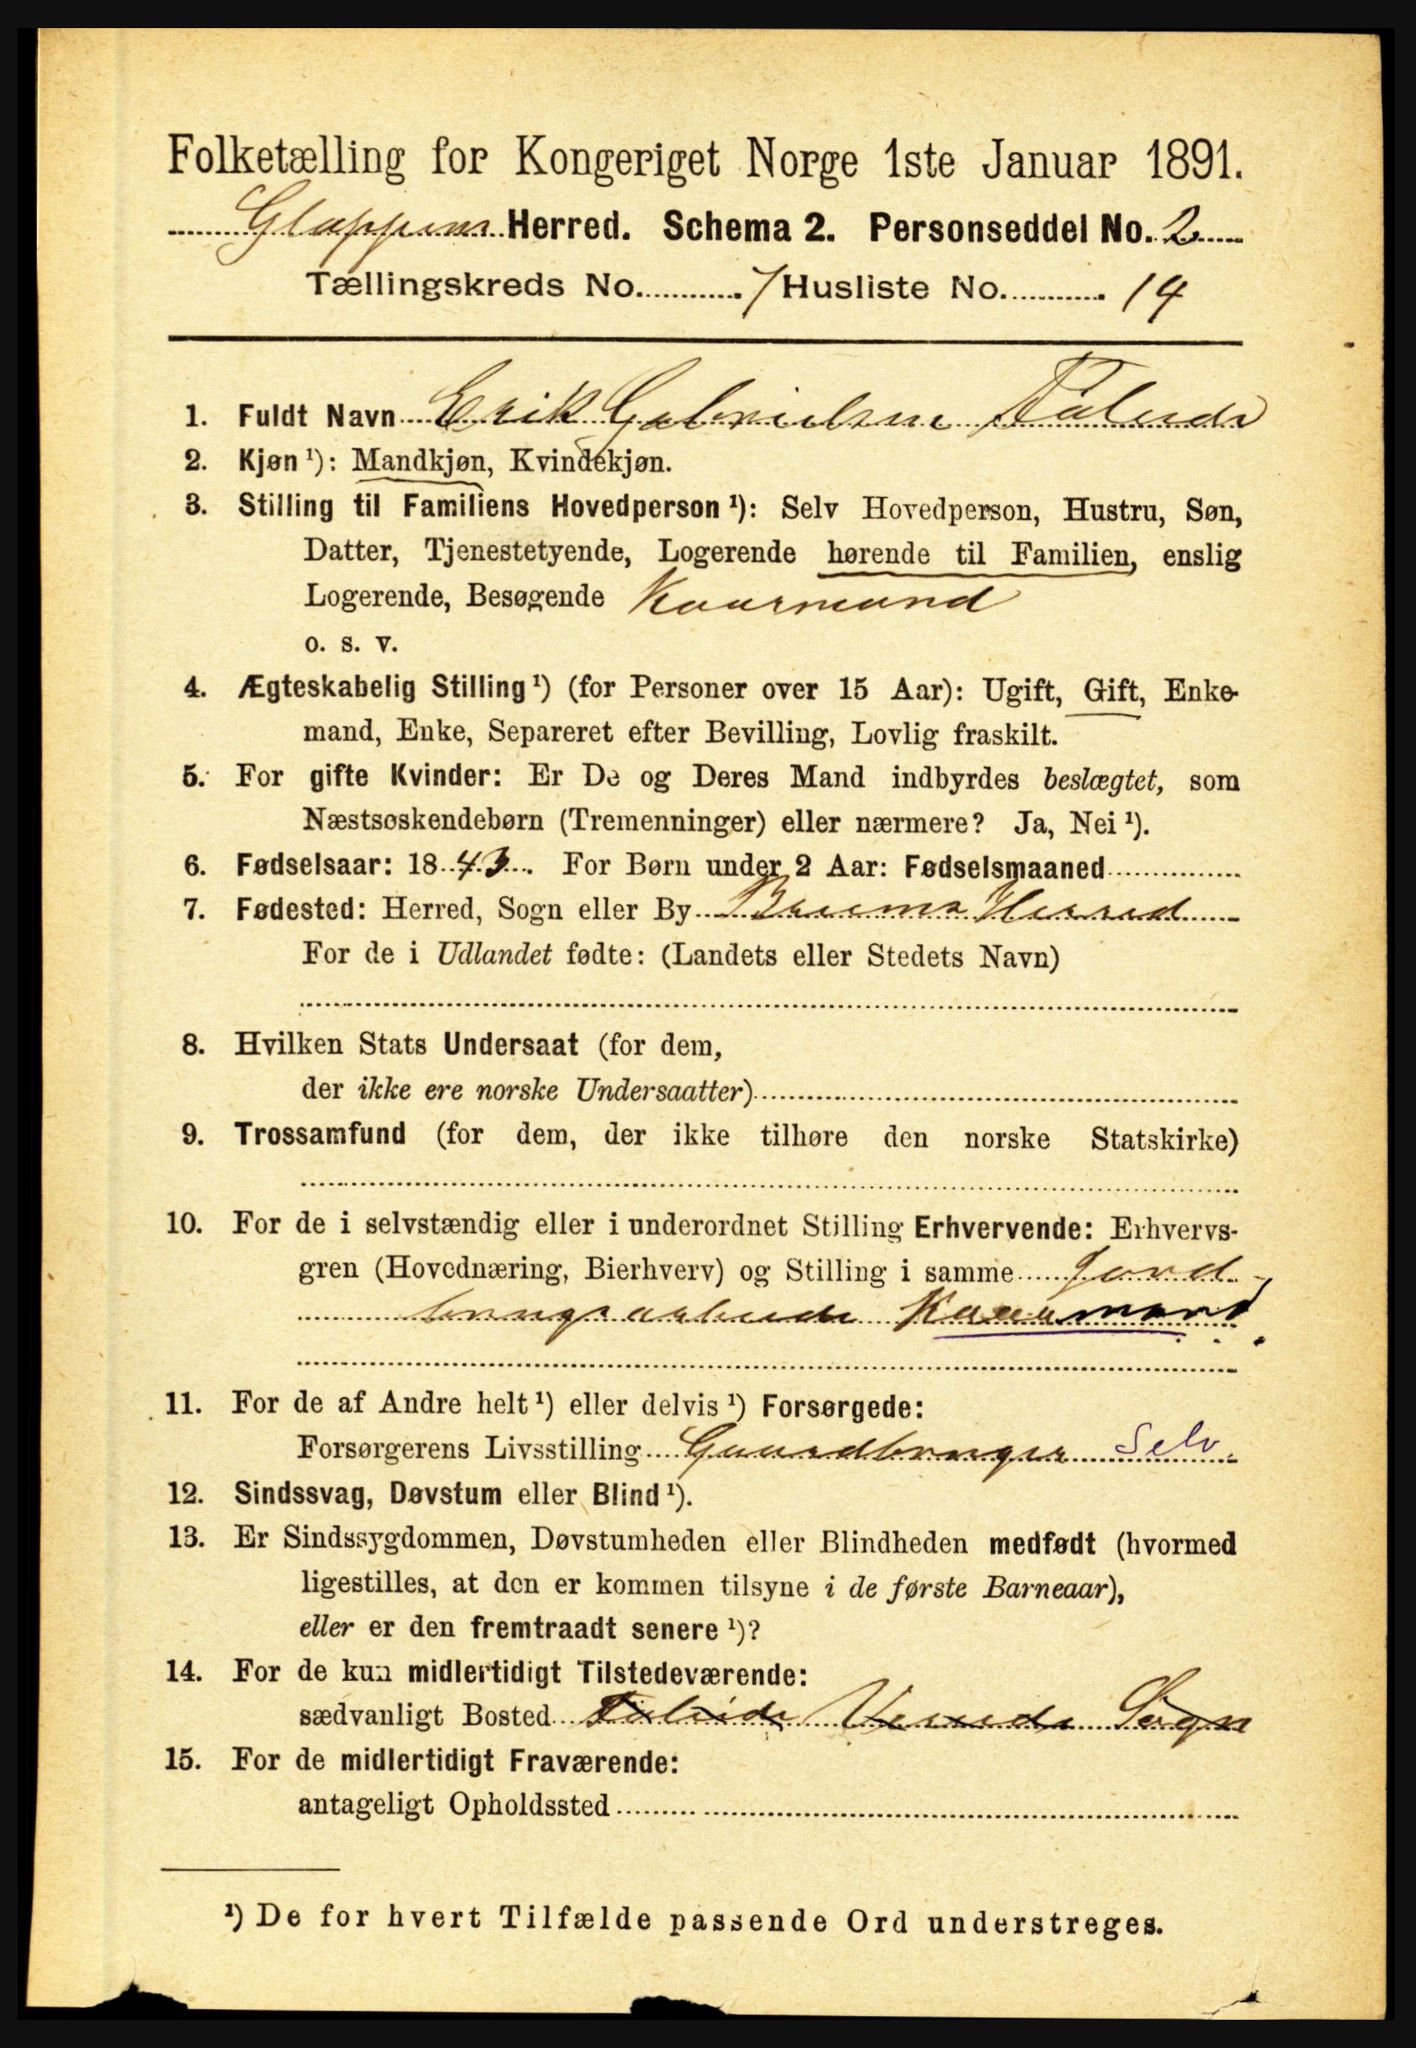 Folketælling for Kongeriget Norge 1ste Januar 1891.
Gloppens Herred. Schema 2. Personseddel No. 2
Tællingskreds No. 7 Husliste No. 14
1. Fuldt Navn Erik Gabrielsen
2. Kjøn ¹): Mandkjøn, Kvindekjøn.
3. Stilling til Familiens Hovedperson ¹): Selv Hovedperson, Hustru, Søn,
Datter, Tjenestetyende, Logerende hørende til Familien, enslig
Logerende, Besøgende Kaarmand
o. s. v.
4. Ægteskabelig Stilling ¹) (for Personer over 15 Aar): Ugift, Gift, Enke-
mand, Enke, Separeret efter Bevilling, Lovlig fraskilt.
5. For gifte Kvinder: Er De og Deres Mand indbyrdes beslægtet, som
Næstsøskendebørn (Tremenninger) eller nærmere? Ja, Nei ¹).
6. Fødselsaar: 1843. For Børn under 2 Aar: Fødselsmaaned
7. Fødested: Herred, Sogn eller By Breims Herred
For de i Udlandet fødte: (Landets eller Stedets Navn)
8. Hvilken Stats Undersaat (for dem,
der ikke ere norske Undersaatter)
9. Trossamfund (for dem, der ikke tilhøre den norske Statskirke)
10. For de i selvstændig eller i underordnet Stilling Erhvervende: Erhvervs-
gren (Hovednæring, Bierhverv) og Stilling i samme Jord-
brugsarbeide Kaarmand
11. For de af Andre helt ¹) eller delvis ¹) Forsørgede:
Forsørgerens Livsstilling Gaardbruger Selv.
12. Sindssvag, Døvstum eller Blind ¹).
13. Er Sindssygdommen, Døvstumheden eller Blindheden medfødt (hvormed
ligestilles, at den er kommen tilsyne i de første Barneaar),
eller er den fremtraadt senere ¹)?
14. For de kun midlertidigt Tilstedeværende:
sædvanligt Bosted Sogn
15. For de midlertidigt Fraværende:
antageligt Opholdssted
¹) De for hvert Tilfælde passende Ord understreges.